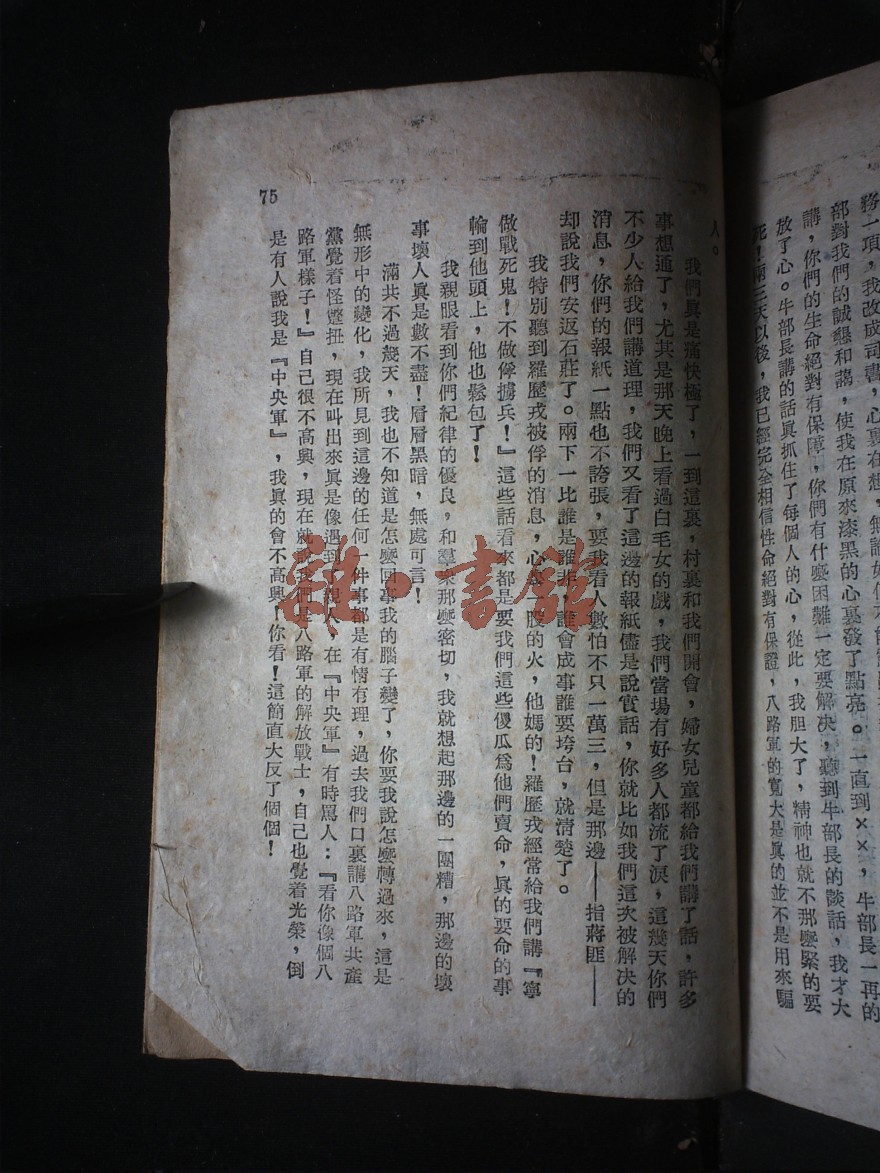 務一項，我改成司書，心裏在想，無論如何不能
部對我們的誠懇和譪，使我在原來漆黑的心裏發了點亮。一直到××，牛部長一再的
講，你們的生命絕對有保障，你們有什麽困難一定要解決，聽到牛部長的談話，我才大
放了心。牛部長講的話眞抓住了每個人的心，從此，我胆大了，精神也就不那麽緊的要
死！兩三天以後，我已經完全相信性命絕對有保證，八路軍的寬大是眞的並不是用來騙
人。
我們眞是痛快極了，一到這裏，村裏和我們開會，婦女兒童都給我們講了話，許多
事想通了，尤其是那天晚上看過白毛女的戲，我們當場有好多人都流了淚，這幾天你們
不少人給我們講道理，我們又看了這邊的報紙儘是說實話，你就比如我們這次被解決的
消息，你們的報紙一點也不誇張，要我看人數怕不只一萬三，但是那邊——指蔣匪——
却說我們安返石莊了。兩下一比誰是誰非，誰會成事誰要垮台，就淸楚了。
我特別聽到羅歷戎被俘的消息，心裏一股的火，他媽的！羅歷戎經常給我們講『寧
做戰死鬼！不做俘擄兵！』這些話看來都是要我們這些傻瓜爲他們賣命，眞的要命的事
輪到他頭上，他也鬆包了！
我親眼看到你們紀律的優良，和羣衆那麽密切，我就想起那邊的一團糟，那邊的壞
事壞人眞是數不盡！層層黑暗，無處可言！
滿共不過幾天，我也不知道是怎麽回事我的腦子變了，你要我說怎麽轉過來，這是
無形中的變化，我所見到這邊的任何一件事都是有情有理，過去我們口裏講八路軍共產
黨覺着怪蹩扭，現在叫出來眞是像遇到了親人，在『中央軍』有時罵人：『看你像個八
路軍樣子！』自己很不高興，現在就說我們是八路軍的解放戰士，自己也覺着光榮，倒
是有人說我是『中央軍』，我眞的會不高興！你看！這簡直大反了個個！
75
雜·書館